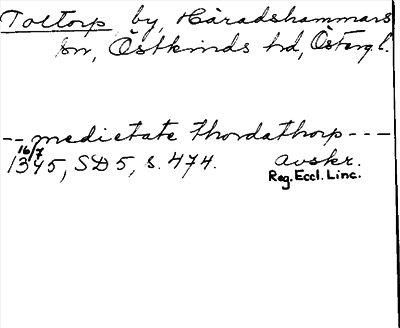 Toltorp by, Häradshammars
sn, Östkinds hd, Östergl.
-- medietate thordathorp ---
16/7
1345, SD 5, s. 474. avskr.
Reg. Eccl. Linc.